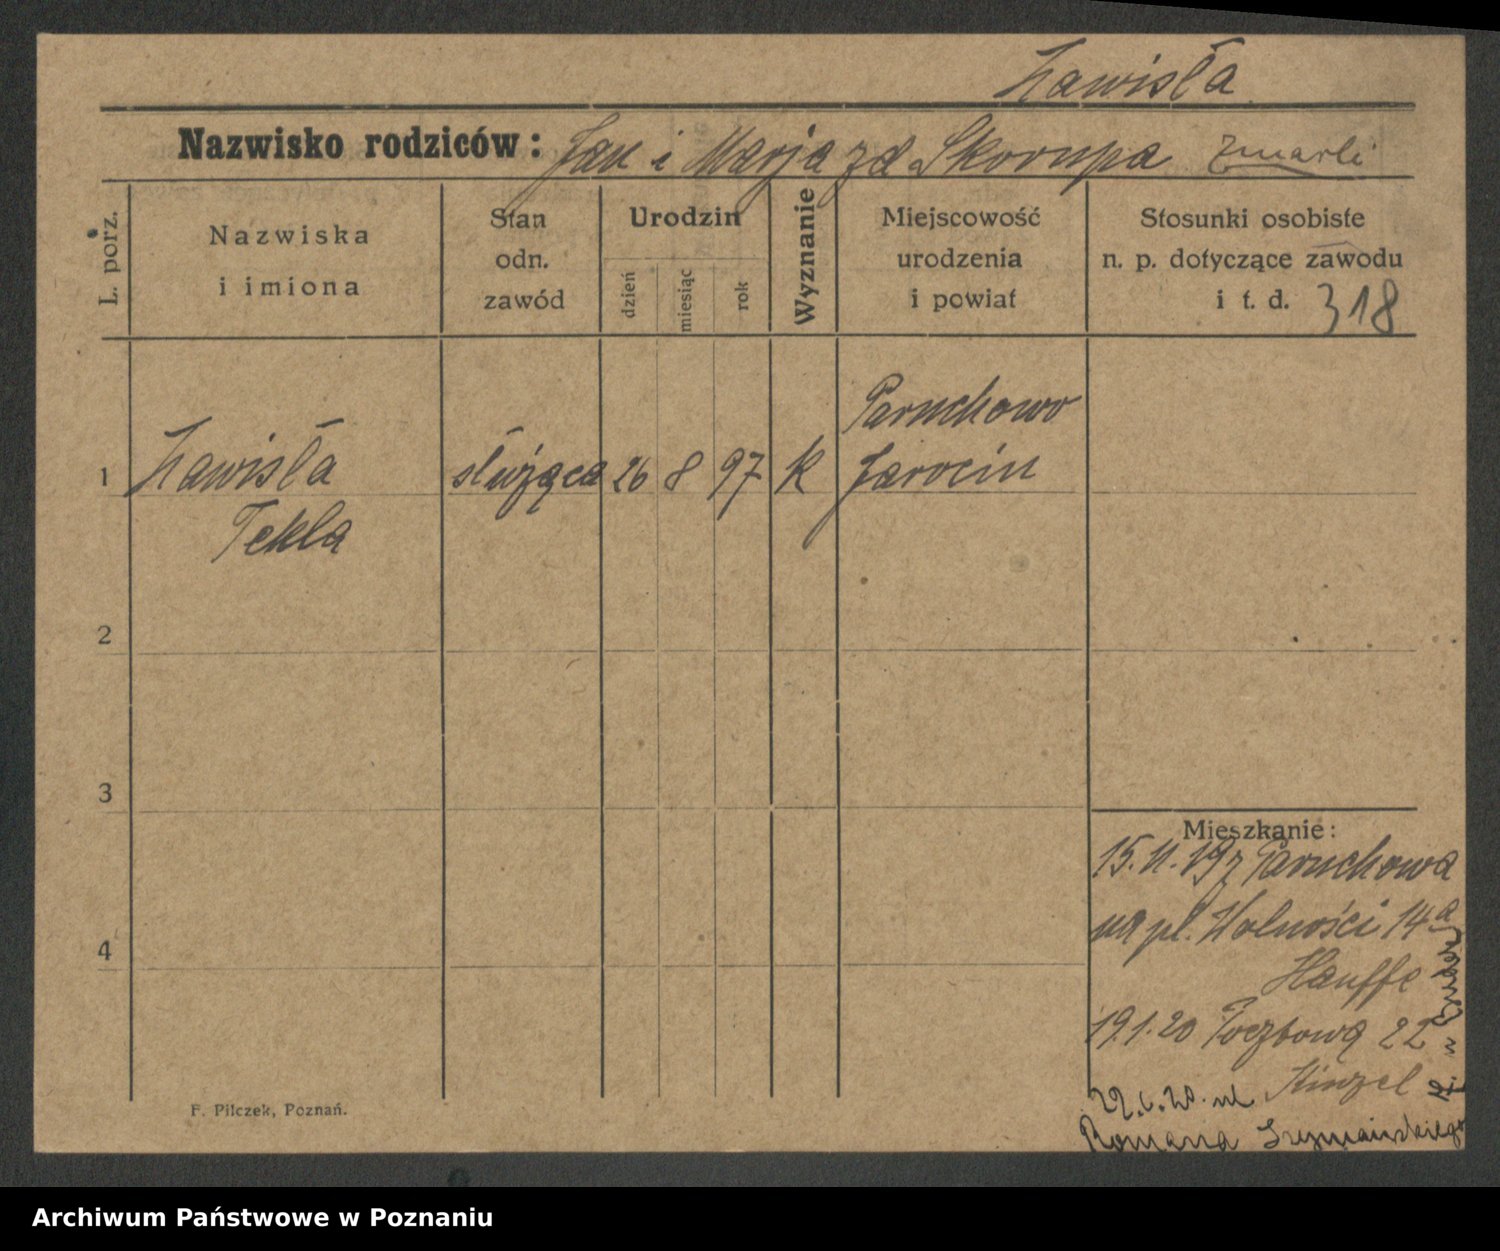 Zawisła
Nazwisko rodziców: Jan i Marja zd Skorupa zmarli
L. porz.
Nazwiska
i imiona
Stan
odn.
zawód
Urodzin
dzień
miesiąc
rok
Wyznanie
Miejscowość
urodzenia
i powiat
Stosunki osobiste
n. p. dotyczące zawodu
i t. d. 318
Paruchowo
1 Zawisła służąca 26 8 97 k Jarocin
Tekla
2
3
4
Mieszkanie:
15.11.19 z Paruchowa
na pl. Wolności 14a
Hauffe
19.1.20 Pocztowa 22
Kinzel
22.6.20. ul
Romana Szymańskiego
F. Pilczek, Poznań.
Archiwum Państwowe w Poznaniu